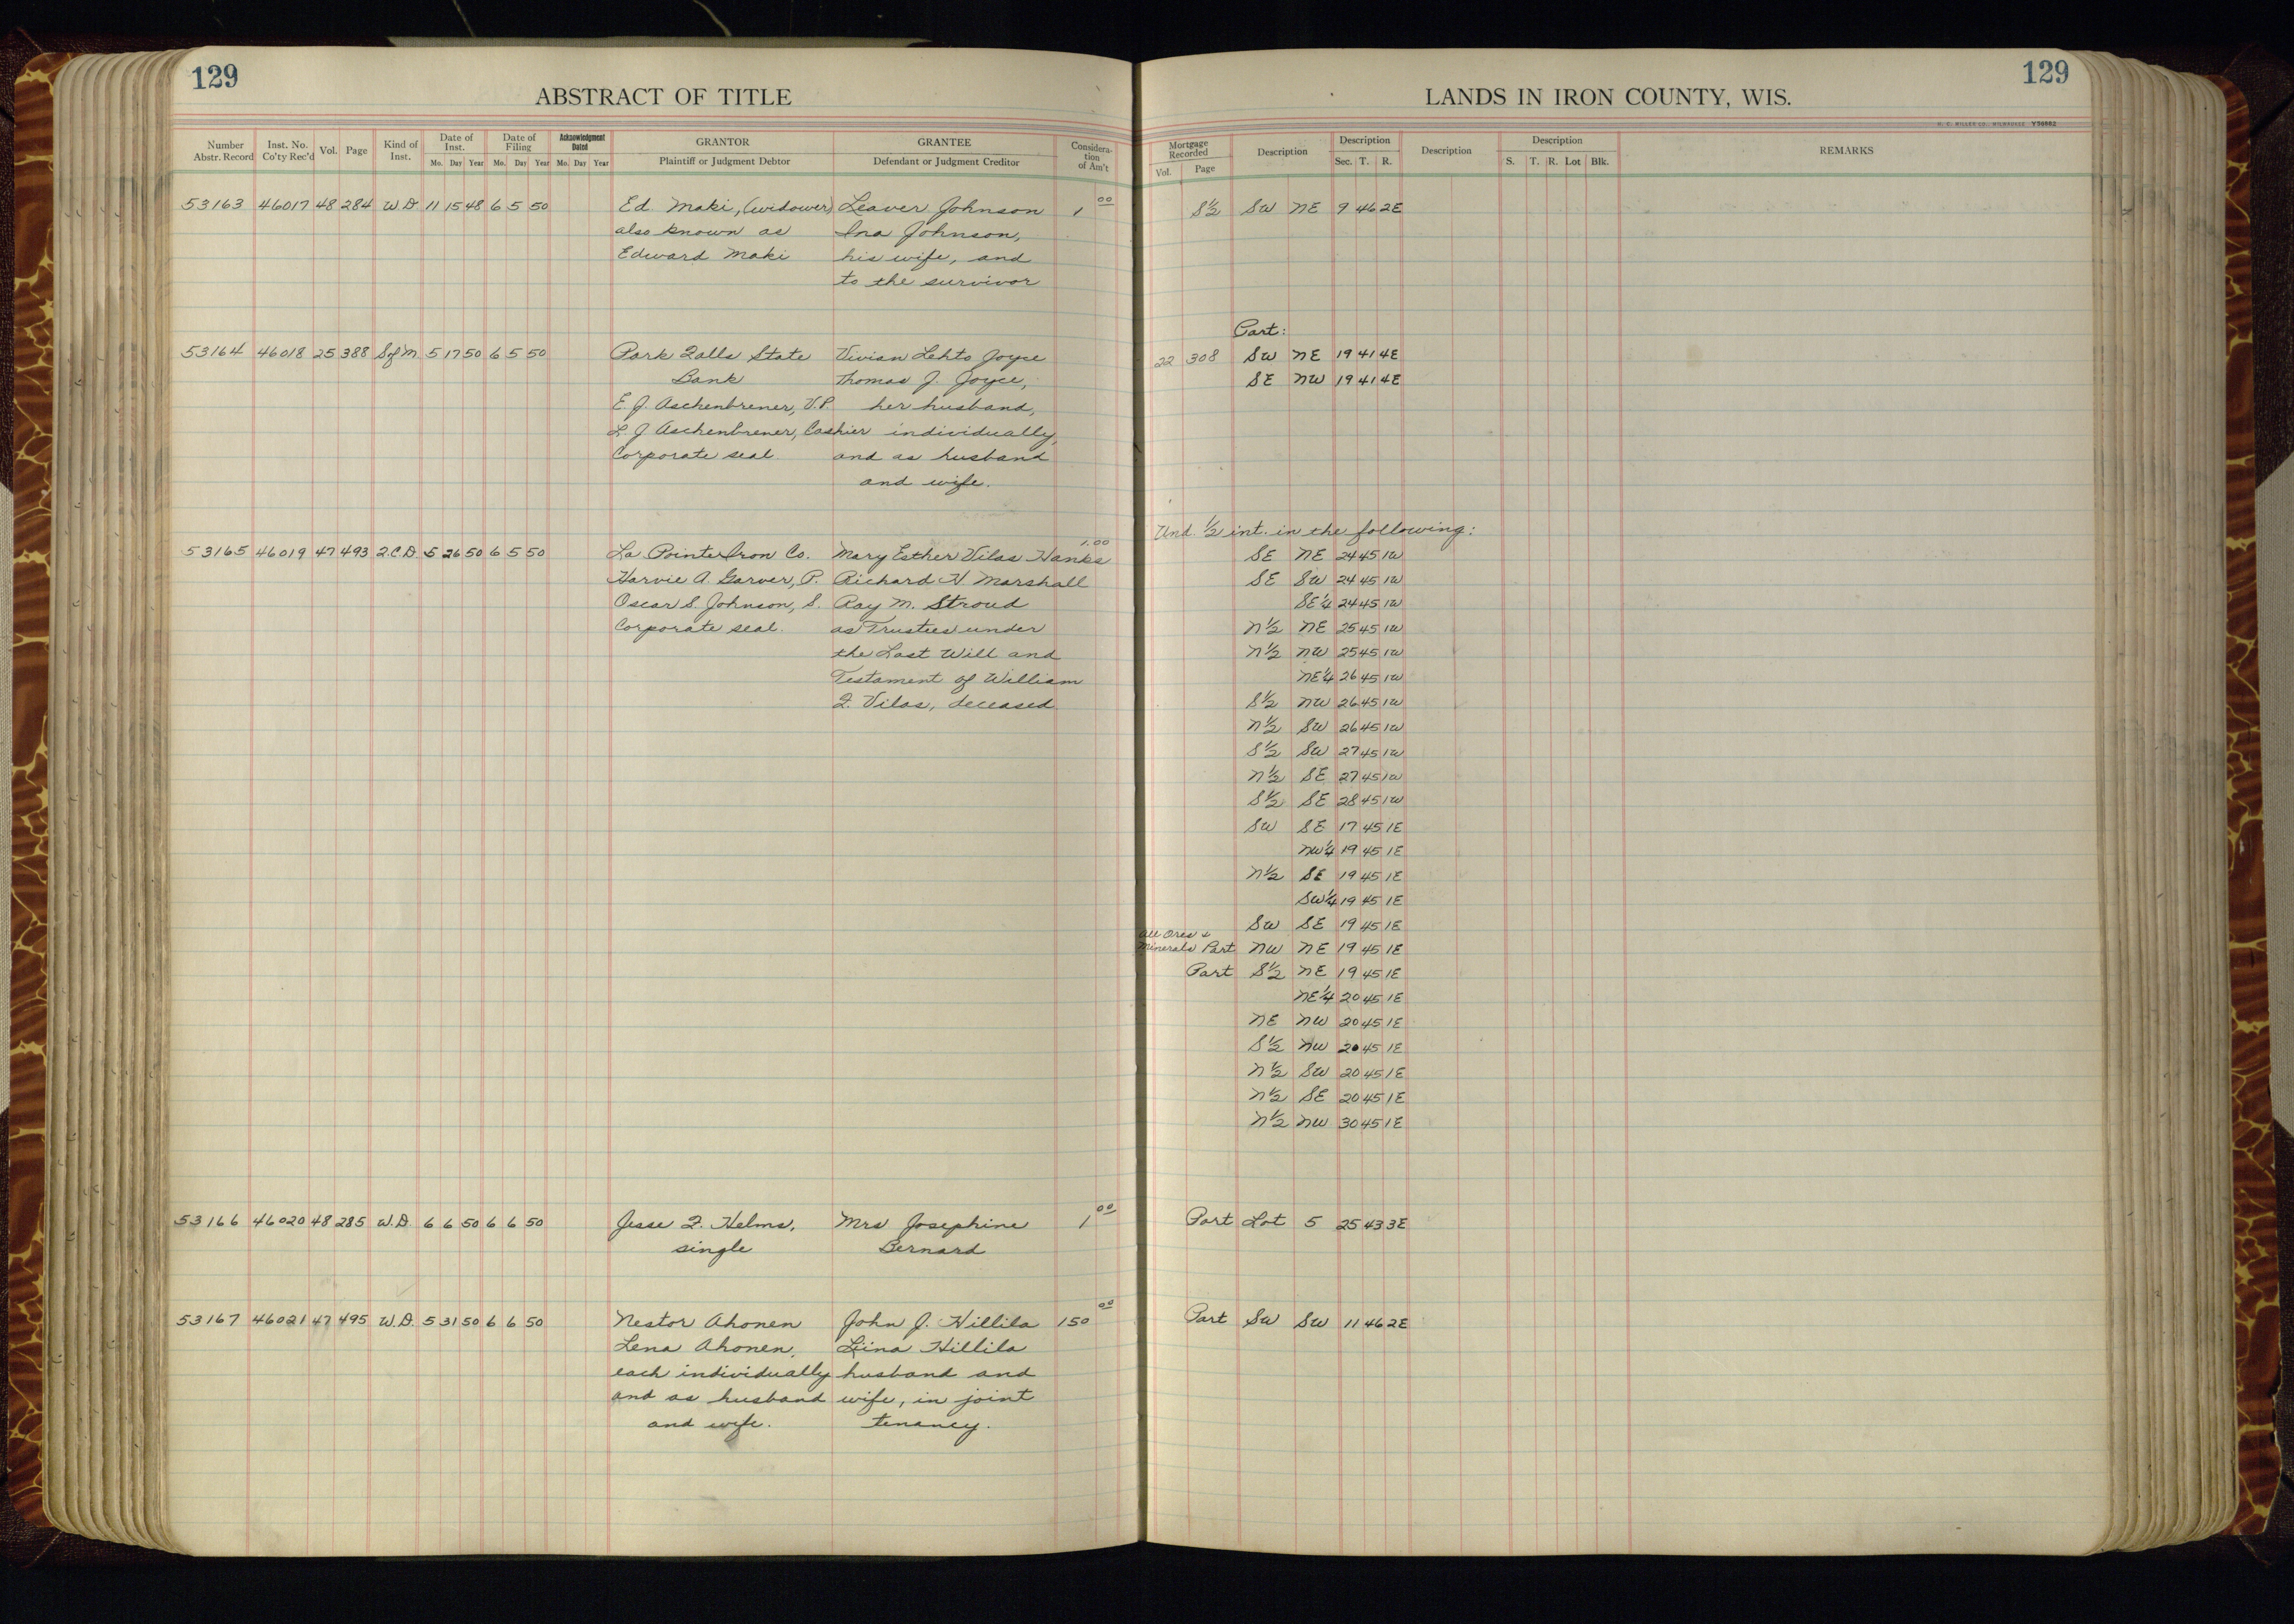 129
ABSTRACT OF TITLE
Number Abstr. Record | Inst. No. Co'ty Rec'd | Vol. | Page | Kind of Inst. | Date of Inst. Mo. Day Year | Date of Filing Mo. Day Year | Acknowledgment Dated Mo. Day Year | GRANTOR Plaintiff or Judgment Debtor | GRANTEE Defendant or Judgment Creditor | Considera-tion of Am't
53163 46017 48 284 W.D. 11 15 48 6 5 50 Ed. Maki, (widower) Leaver Johnson 1 00
also known as Ina Johnson,
Edward Maki his wife, and
to the survivor
53164 46018 25 388 S of M. 5 17 50 6 5 50 Park Falls State Vivian Lehto Joyce
Bank Thomas J. Joyce,
E. J. Aschenbrener, V.P. her husband,
L. J. Aschenbrener, Cashier individually,
Corporate seal. and as husband
and wife.
53165 46019 47 493 Q.C.D. 5 26 50 6 5 50 La Pointe Iron Co. Mary Esther Vilas Hanks 1.00
Harvie A. Garver, P. Richard H. Marshall
Oscar S. Johnson, S. Ray M. Stroud
Corporate seal. as Trustees under
the Last Will and
Testament of William
F. Vilas, deceased.
53166 46020 48 285 W.D. 6 6 50 6 6 50 Jesse F. Helms, Mrs Josephine 1 00
single Bernard
53167 46021 47 495 W.D. 5 31 50 6 6 50 Nestor Ahonen John J. Hillila 150 00
Lena Ahonen, Liina Hillila
each individually husband and
and as husband wife, in joint
and wife. tenancy.
129
LANDS IN IRON COUNTY, WIS.
H. C. MILLER CO., MILWAUKEE Y56862
Mortgage Recorded Vol. Page | Description | Description Sec. T. R. | Description | Description S. T. R. Lot Blk. | REMARKS
S½ SW NE 9 46 2E
Part:
22 308 SW NE 19 41 4E
SE NW 19 41 4E
Und. ½ int. in the following:
SE NE 24 45 1W
SE SW 24 45 1W
SE¼ 24 45 1W
N½ NE 25 45 1W
N½ NW 25 45 1W
NE¼ 26 45 1W
S½ NW 26 45 1W
N½ SW 26 45 1W
S½ SW 27 45 1W
N½ SE 27 45 1W
S½ SE 28 45 1W
SW SE 17 45 1E
NW¼ 19 45 1E
N½ SE 19 45 1E
SW¼ 19 45 1E
SW SE 19 45 1E
All Ores &
Minerals Part NW NE 19 45 1E
Part S½ NE 19 45 1E
NE¼ 20 45 1E
NE NW 20 45 1E
S½ NW 20 45 1E
N½ SW 20 45 1E
N½ SE 20 45 1E
N½ NW 30 45 1E
Part Lot 5 25 43 3E
Part SW SW 11 46 2E